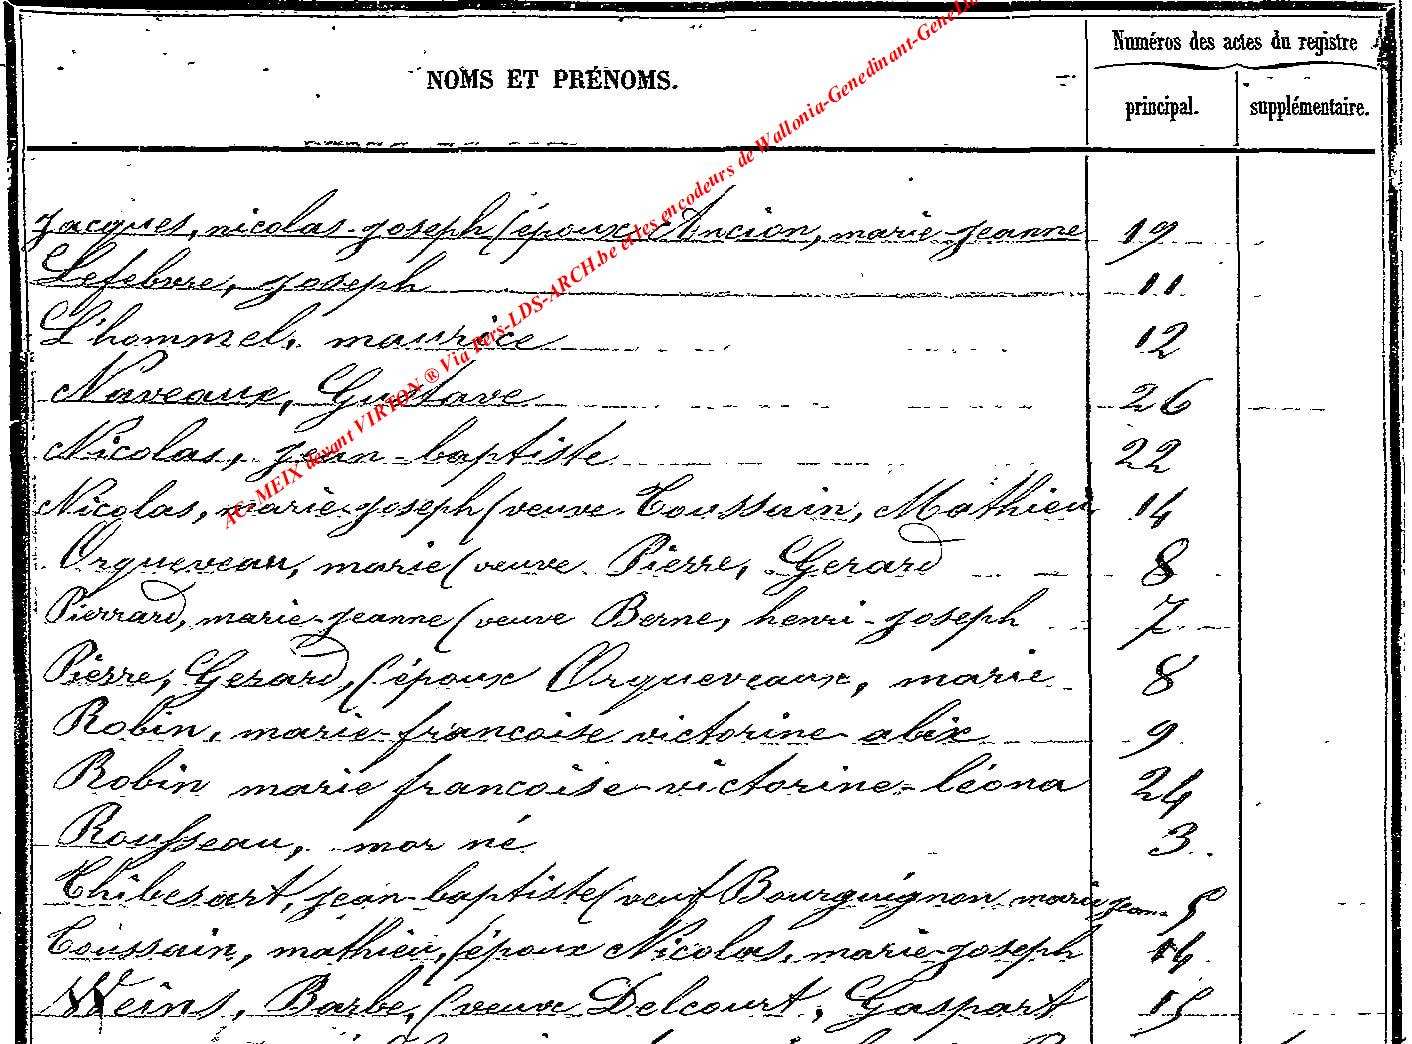 Numéros des actes du registre
NOMS ET PRÉNOMS.
principal. supplémentaire.
Jacques, nicolas-joseph (époux Ancion, marie-jeanne 19
Lefebvre, joseph 11
L'hommel, maurice 12
Naveaux, Gustave 26
Nicolas, jean-baptiste 22
Nicolas, marie-joseph (veuve Toussain, Mathieu 14
Orqueveau, marie (veuve Pierre, Gerard 8
Pierrard, marie-jeanne (veuve Berne, henri-joseph 7
Pierre, Gerard, (époux Orqueveaux, marie 8
Robin, marie-francoise victorine alix 9
Robin marie francoise-victorine-léona 24
Rousseau, mor né 3
Thibesart, jean-baptiste (veuf Bourguignon marie jean 5
Toussain, mathieu, (époux Nicolas, marie-joseph 14
Weins, Barbe, (veuve Delcourt, Gaspart 15
AC-MEIX devant VIRTON ® Via Pers-LDS-ARCH.be et les encodeurs de Wallonia-Genedinant-GeneLux